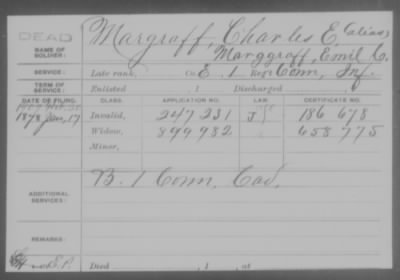 DEAD
NAME OF SOLDIER: Margraff, Charles E. (alias)
Marggraff, Emil C.
SERVICE: Late rank, Co. E. 1 Reg't Conn. Inf.
TERM OF SERVICE: Enlisted , 1 Discharged , 1
DATE OF FILING. CLASS. APPLICATION NO. LAW. CERTIFICATE NO.
1878 Jan, 17 Invalid, 247 231 186 678
Widow, 899 982 658 775
Minor,
ADDITIONAL SERVICES: B. 1 Conn. Cav.
REMARKS:
Died , 1 , at